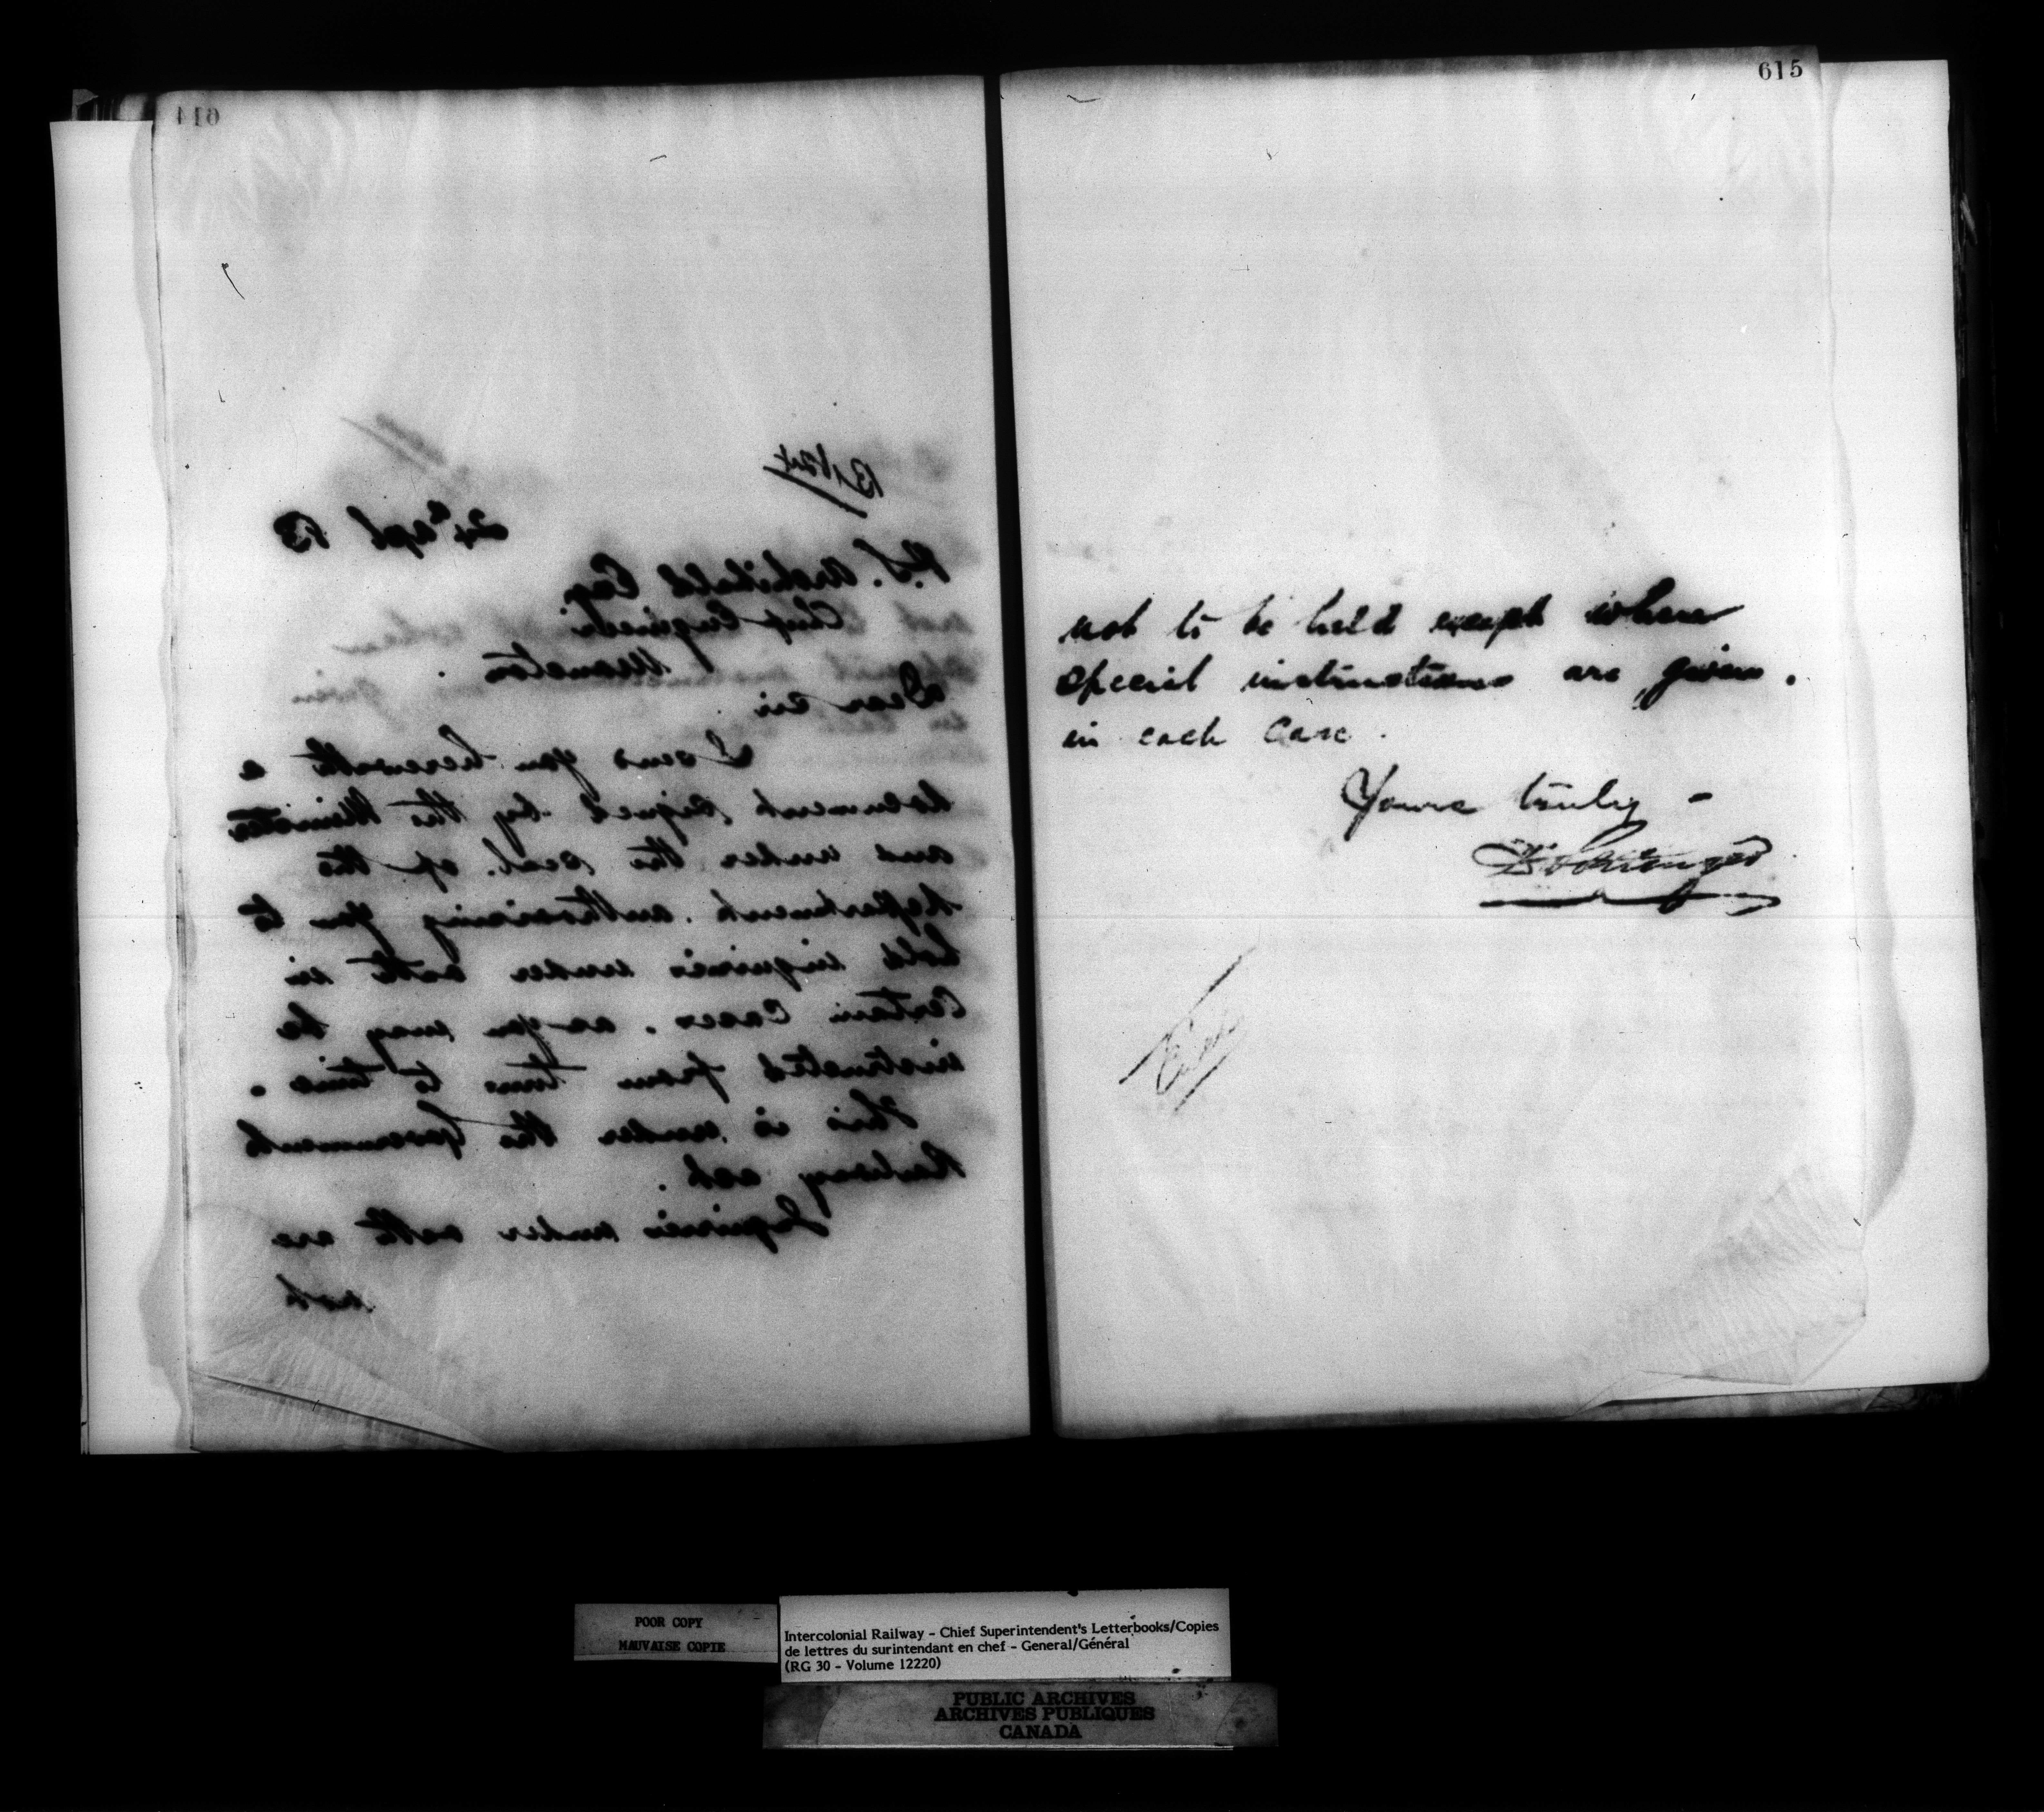 614
24th Apl 83
P.S. Archibald Esq.
Chief Engineer
Moncton.
Dear Sir
I send you herewith a
document signed by the Minister
and under the seal of the
Department. authorising you to
hold inquiries under oath in
Certain Cases. as you may be
instructed from time to time.
This is under the Government
Railway act.
Inquiries under oath are
not
615
not to be held except where
special instructions are given.
in each case.
Yours truly -
D Pottinger
POOR COPY
MAUVAISE COPIE
Intercolonial Railway - Chief Superintendent's Letterbooks/Copies
de lettres du surintendant en chef - General/Général
(RG 30 - Volume 12220)
PUBLIC ARCHIVES
ARCHIVES PUBLIQUES
CANADA